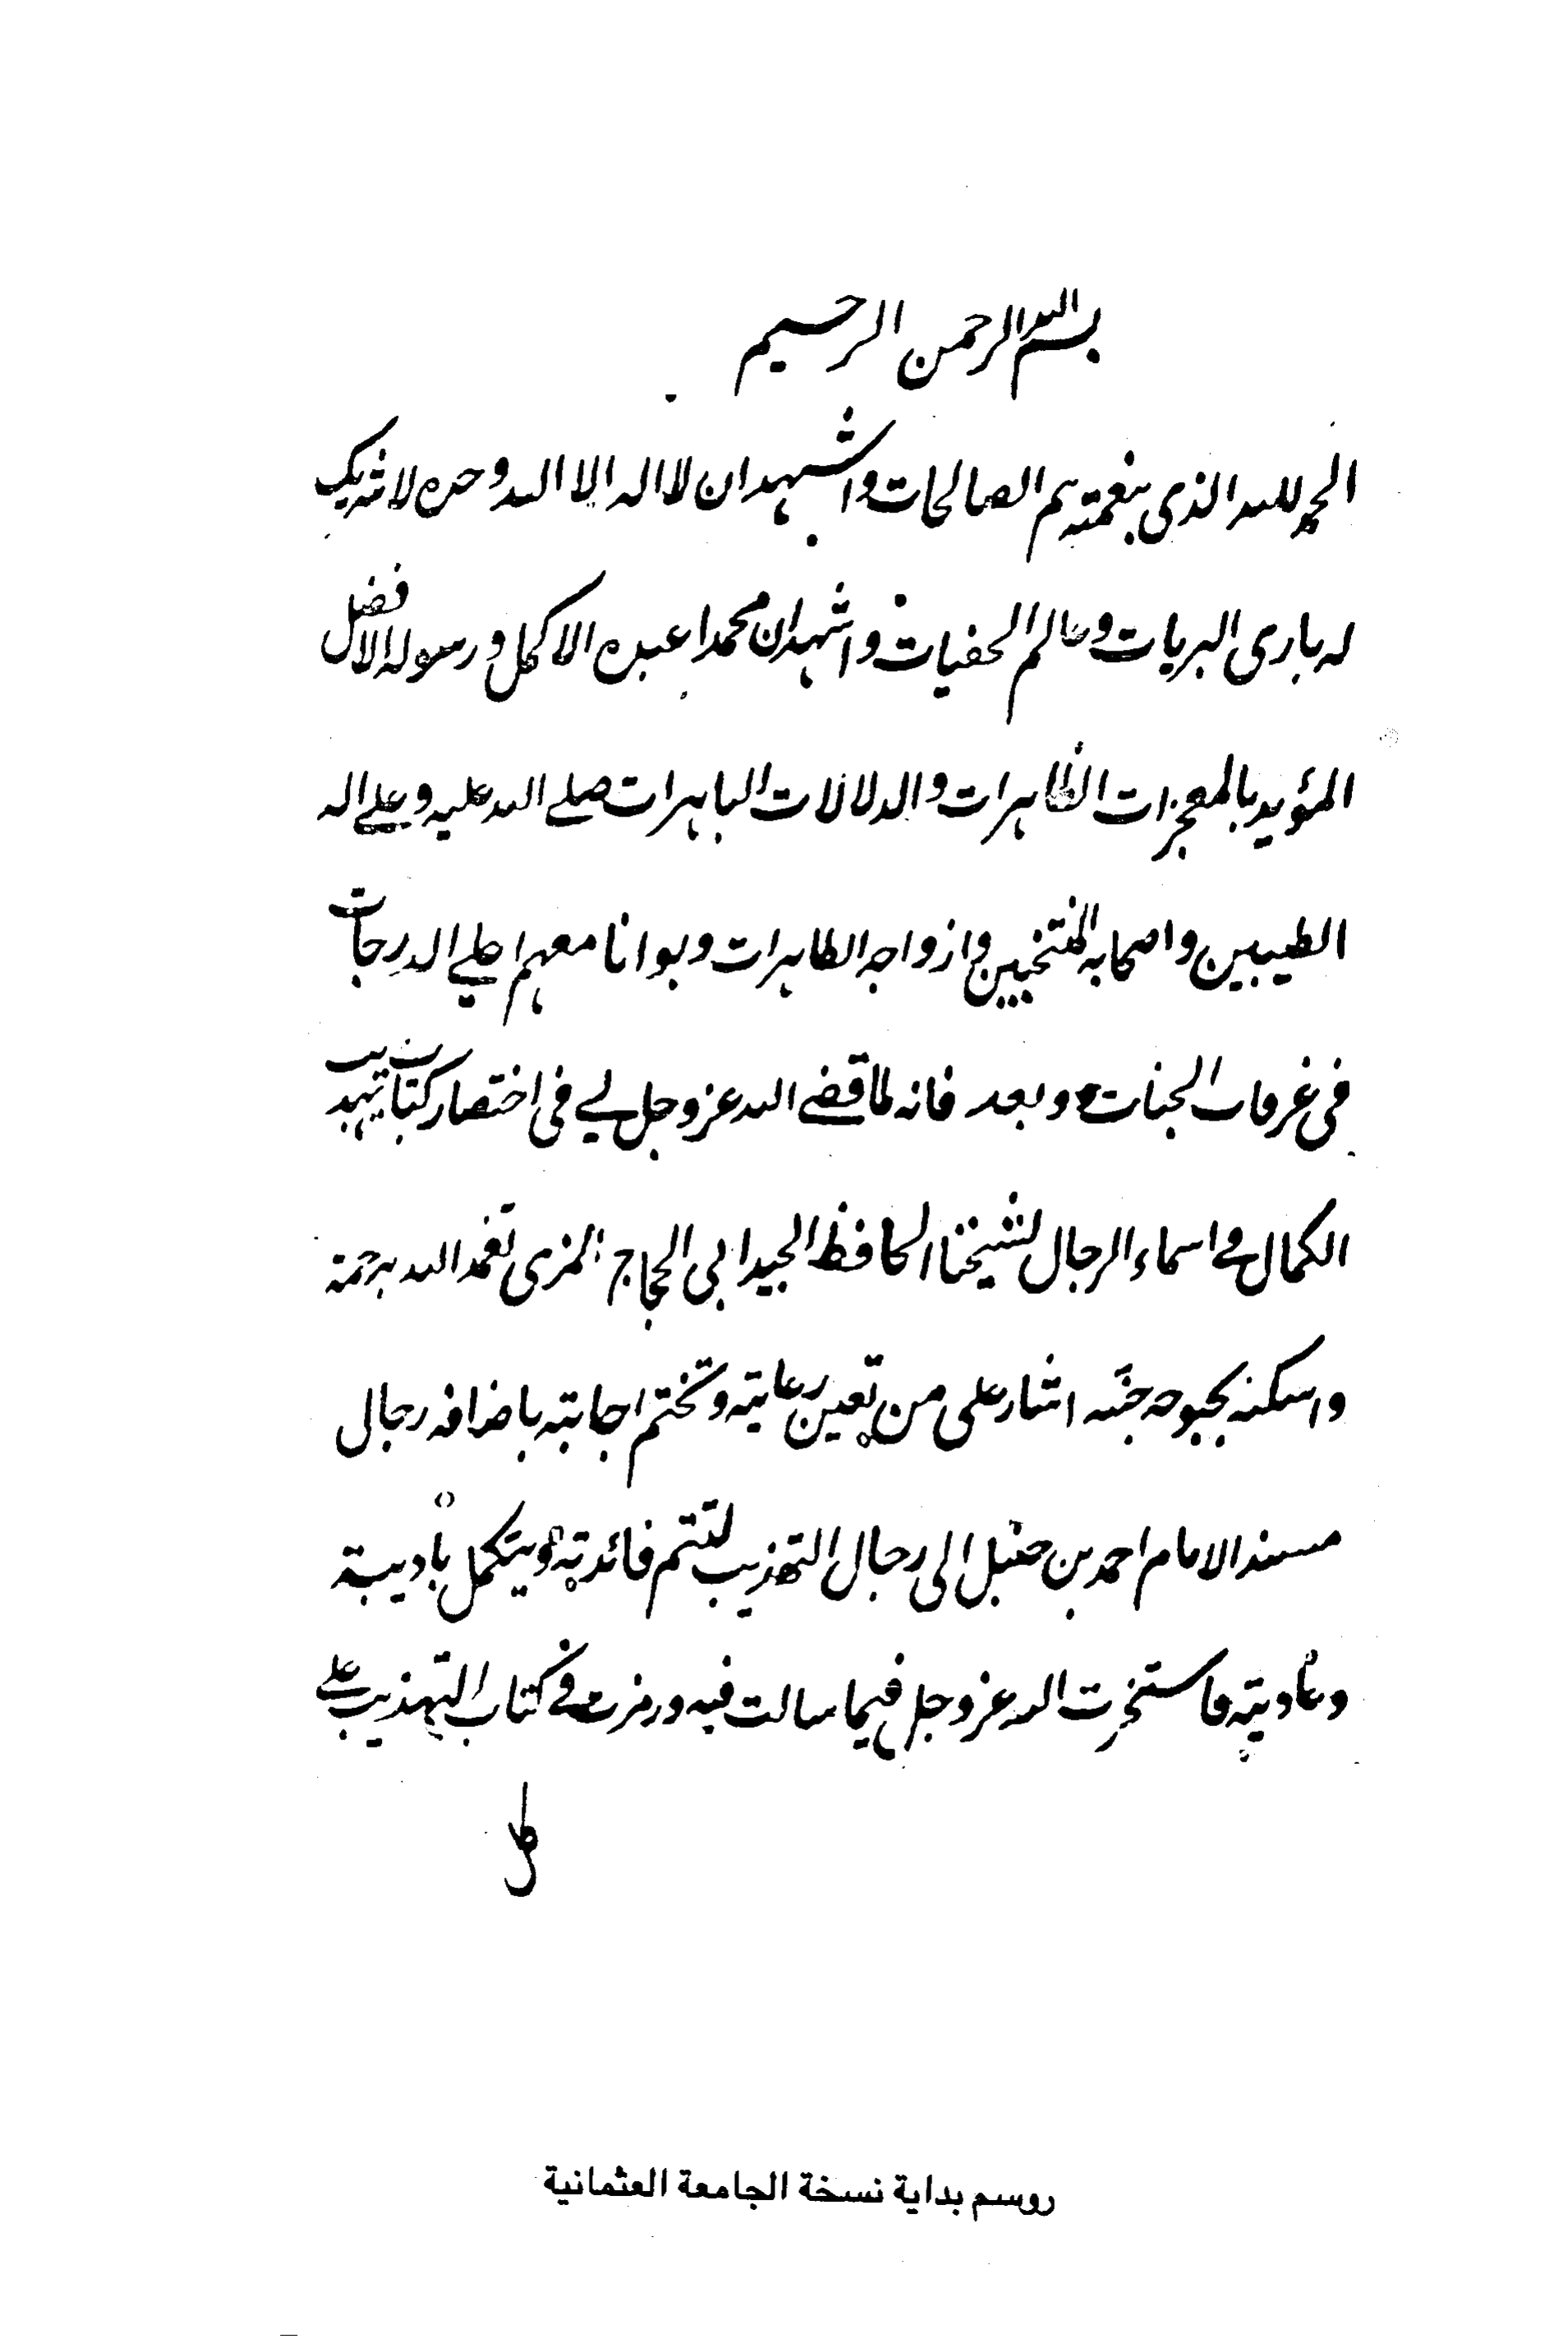 بسم الله الرحمن الرحيم
الحمد لله الذى بنعمته تتم الصالحات واشهد ان لا اله الا الله وحده لا شريك
له بارى البريات وعالم الخفيات واشهد ان محمدا عبده الاكمل ورسوله الافضل
المؤيد بالمعجزات الظاهرات والدلالات الباهرات صلى الله عليه وعلى اله
الطيبين واصحابه المنتخبين وازواجه الطاهرات وبوانا معهم اعلى الدرجات
فى غرفات الجنات وبعد فانه لما قضى الله عز وجل لى فى اختصار كتاب تهذيب
الكمال فى اسماء الرجال لشيخنا الحافظ الجيد ابى الحجاج المزى تغمد الله برحمته
واسكنه بحبوحه جنته اشار على من تعين رعايته وتختم اجابته باضافه رجال
مسند الامام احمد بن حنبل الى رجال التهذيب لتتم فائدته ويتكمل بادبية
وعاديته فاستخرت الله عز وجل فيما سالت فيه ورمزت فى كتاب التهذيب على
كل
روسم بداية نسخة الجامعة العثمانية